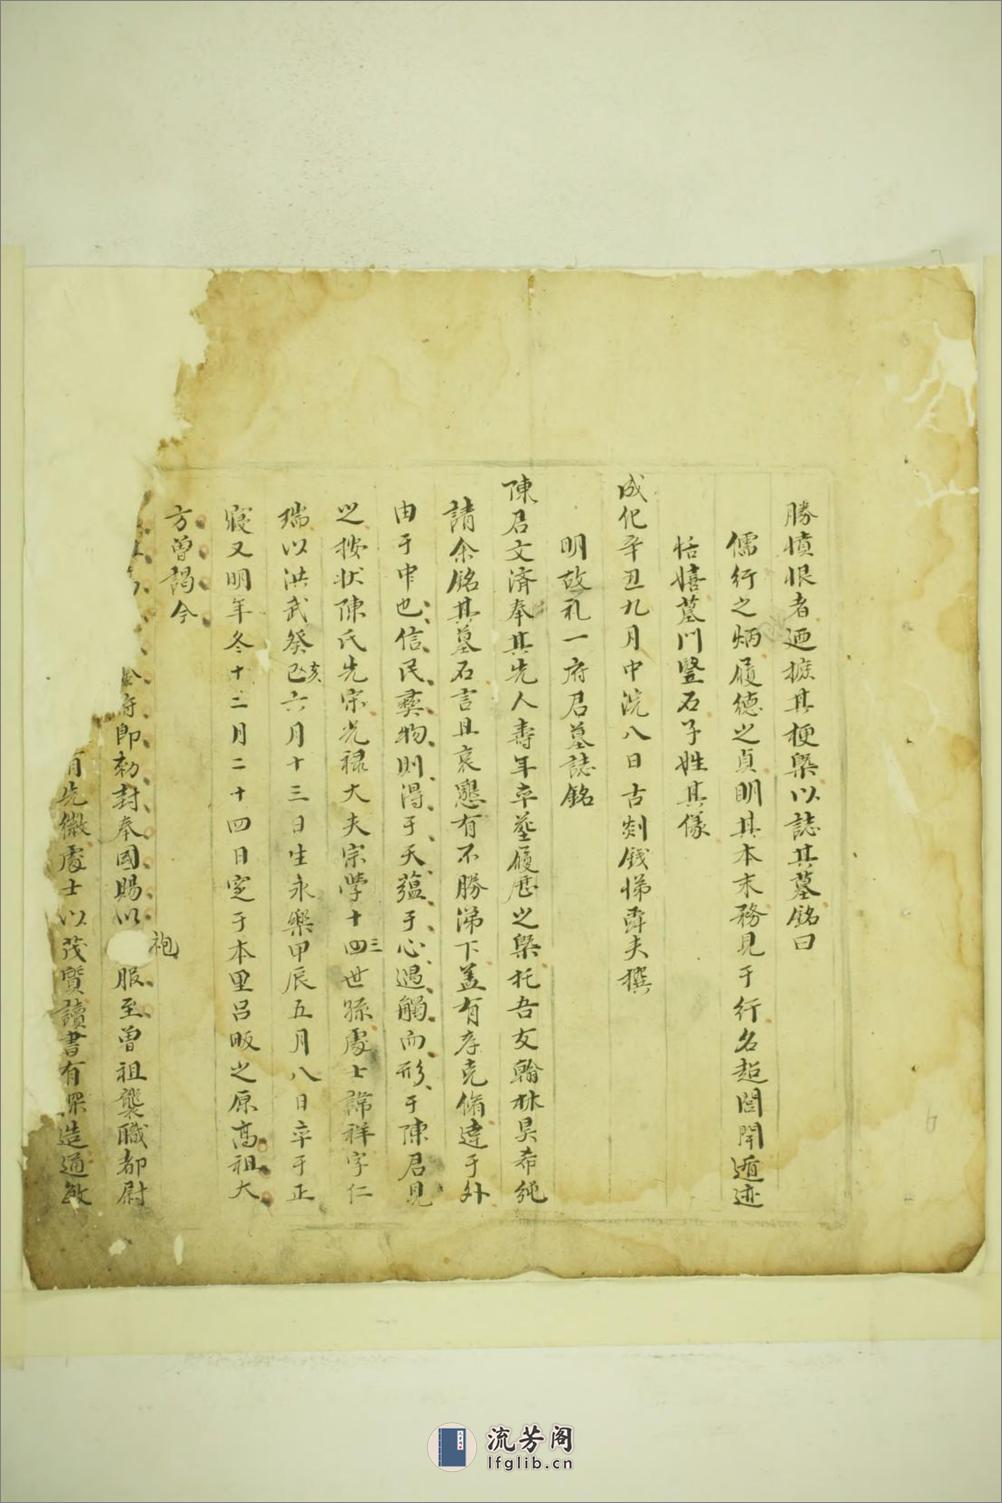 勝憤恨者迺摭其梗槩以誌其墓銘曰
儒行之炳履德之貞明其本末務見于行名起閭閈遁迹
恬嬉墓門豎石子姓其儀
成化辛丑九月中浣八日古剡錢悌舜夫撰
明故礼一府君墓誌銘
陳君文濟奉其先人壽年卒塟履歷之槩托吾友翰林吴希純
請余銘其墓石言且哀懇有不勝涕下盖有孝克脩違于外
由于中也信民彝物則得于天蘊于心遇觸而形于陳君見
之按狀陳氏先宗光禄大夫宗學十四三世孫處士諱祥字仁
瑞以洪武癸巳亥六月十三日生永樂甲辰五月八日卒于正
寢又明年冬十二月二十四日窆于本里吕畈之原高祖大
方曾謁今
府即勑封奉国賜以袍服至曾祖襲職都尉
有先徽處士以茂質讀書有深造通敏
流芳阁
lfglib.cn